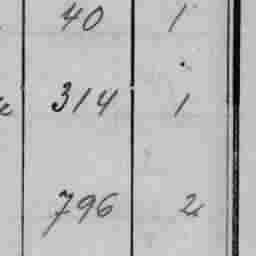 40 1
314 1
796 2